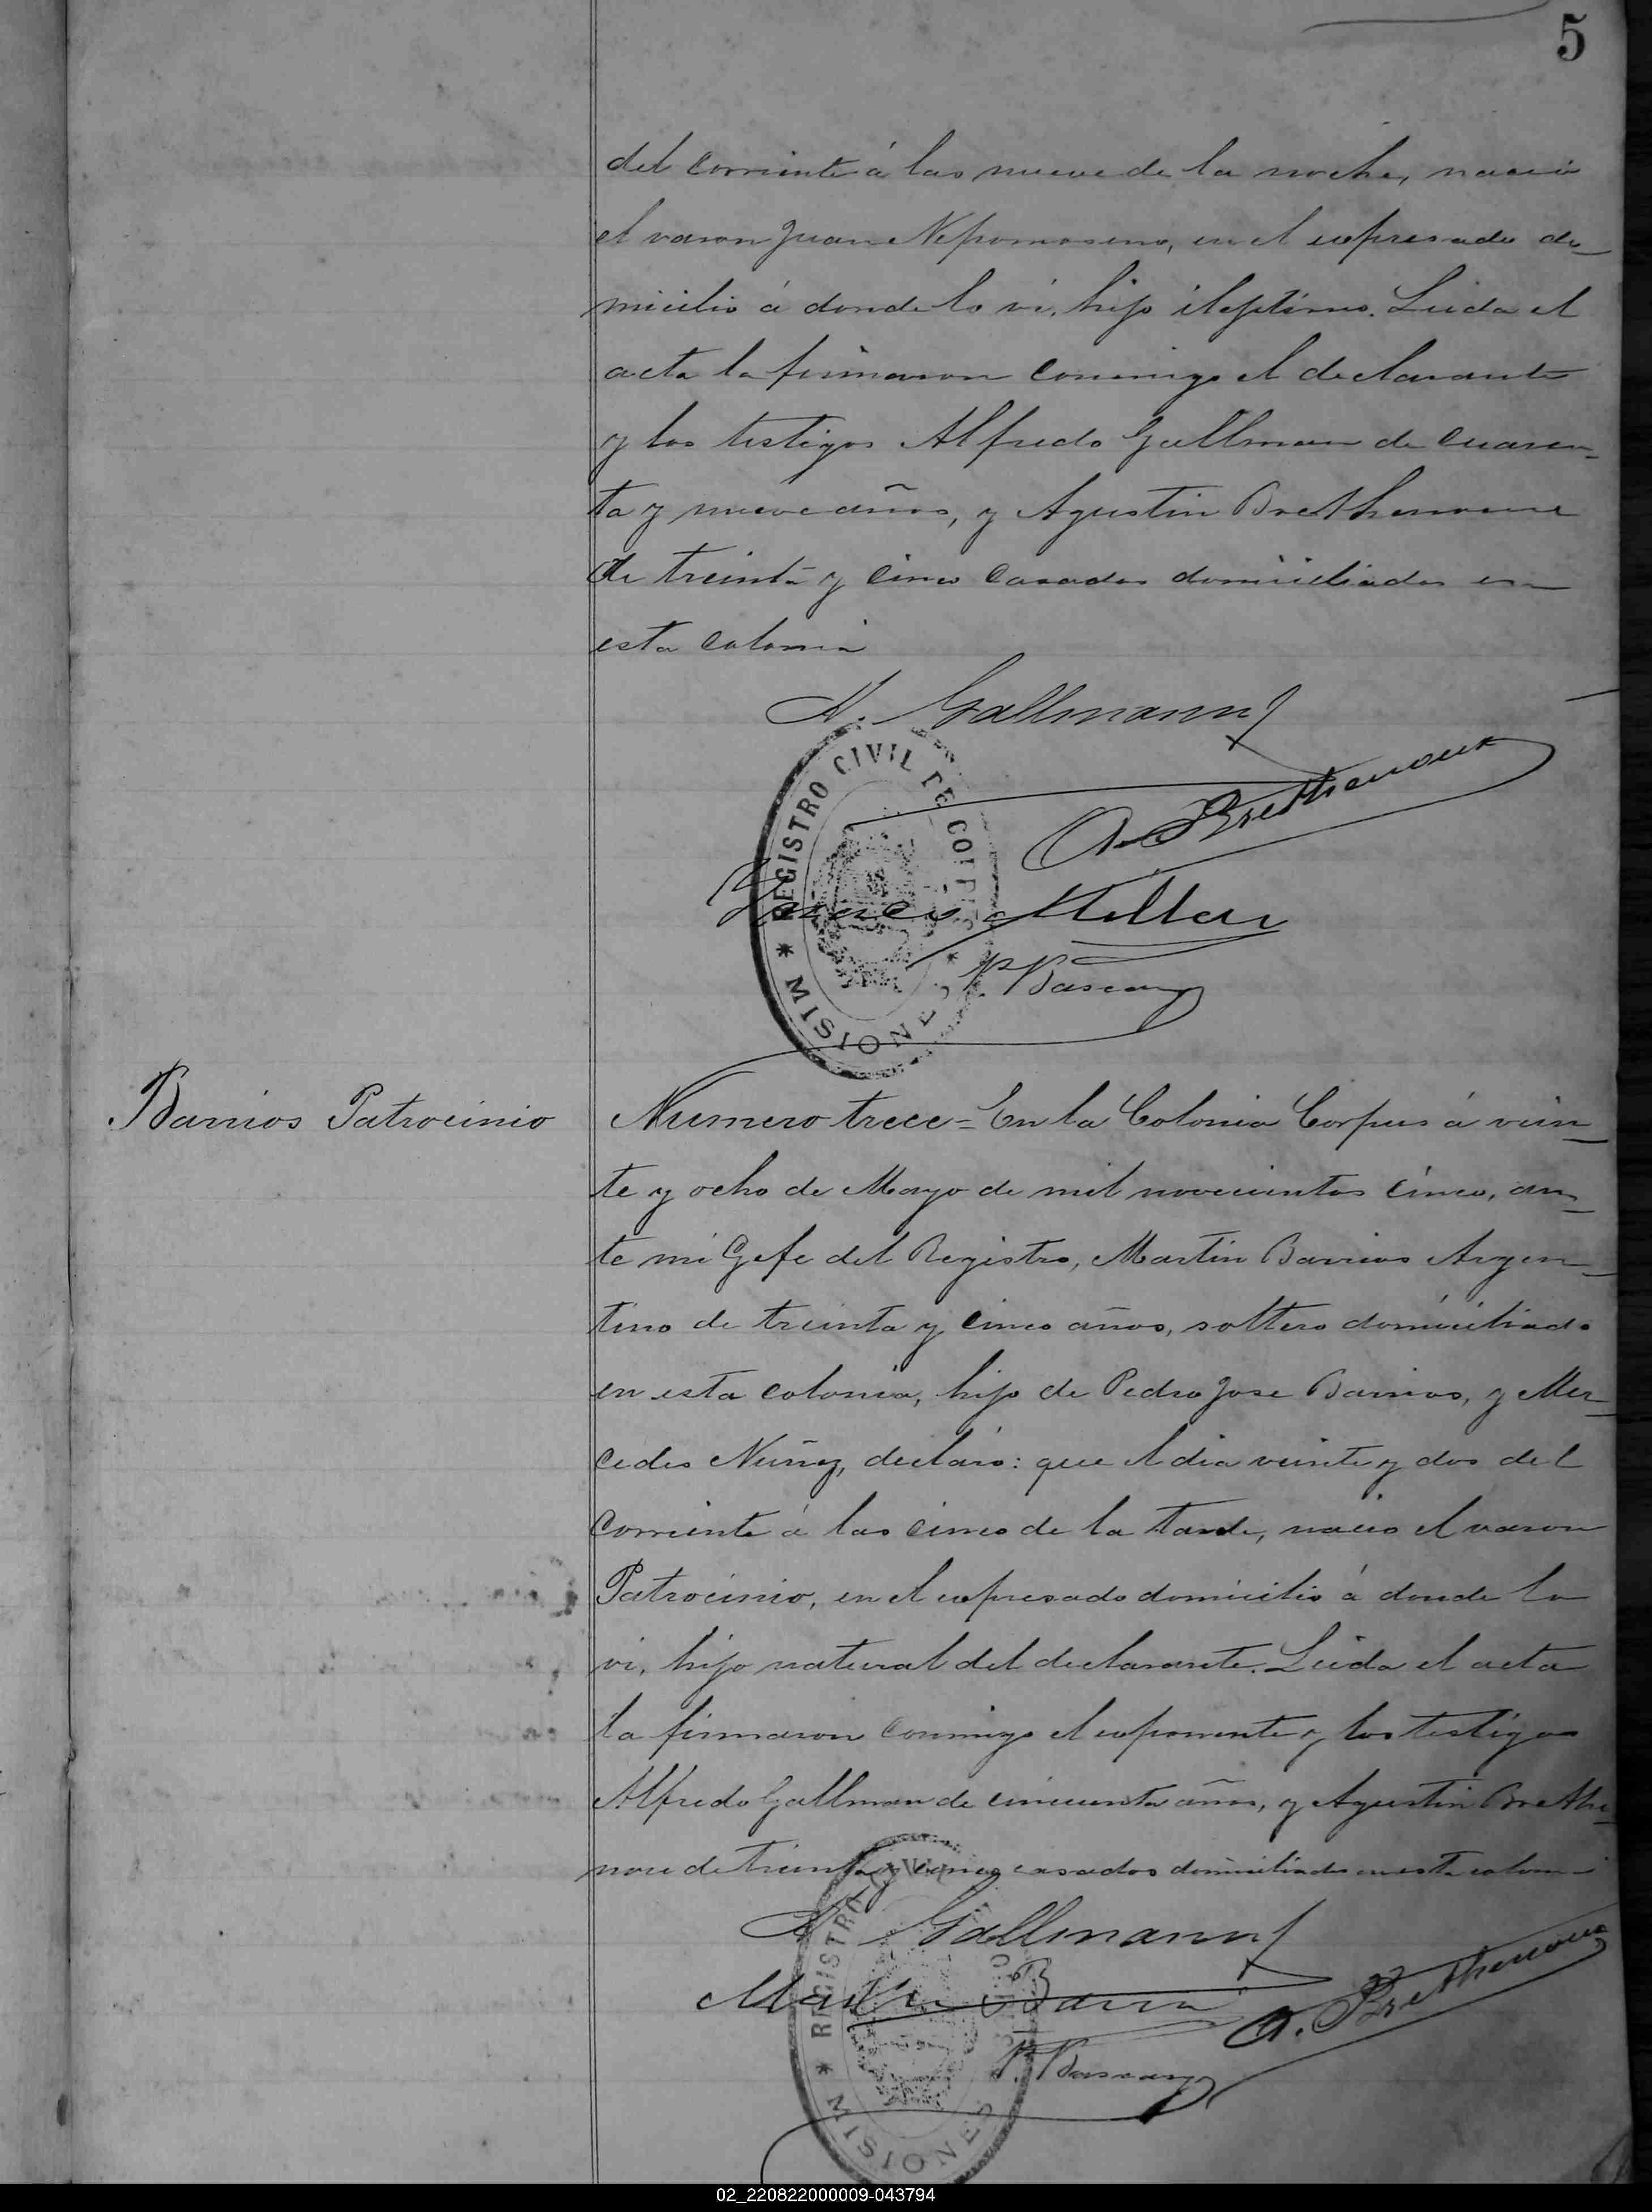 5
del corriente á las nueve de la noche, nacio
el varon Juan Nepomoseno, en el expresado do-
micilio á donde lo vi, hijo
acta la firmaron conmigo el declarante
y los testigos Alfredo Gallman de cuaren-
ta y nueve años, y Agustin Brethenoux
de treinta y cinco casados domiciliados en
esta colonia
A. Gallmann
A. Brethenoux
REGISTRO CIVIL DE CORPUS
* MISIONES *
P. Bascary
Barrios Patrocinio
Numero trece = En la Colonia Corpus á vein-
te y ocho de Mayo de mil novecientos cinco, an-
te mi Gefe del Registro, Martin Barrios Argen-
tino de treinta y cinco años, soltero domiciliado
en esta colonia, hijo de Pedro Jose Barrios, y Mer-
cedes Nuñez, declaro: que el dia veinte y dos del
corriente á las cinco de la tarde, nacio el varon
Patrocinio, en el expresado domicilio á donde lo
vi, hijo natural del declarante. Leida el acta
la firmaron conmigo el exponente y los testigos
Alfredo Gallman de cincuenta años, y Agustin Brethe-
noux de treinta y cinco casados domiciliados en esta colonia
A. Gallmann
Martin Barrio
A. Brethenoux
P. Bascary
REGISTRO CIVIL
* MISIONES
02_220822000009-043794